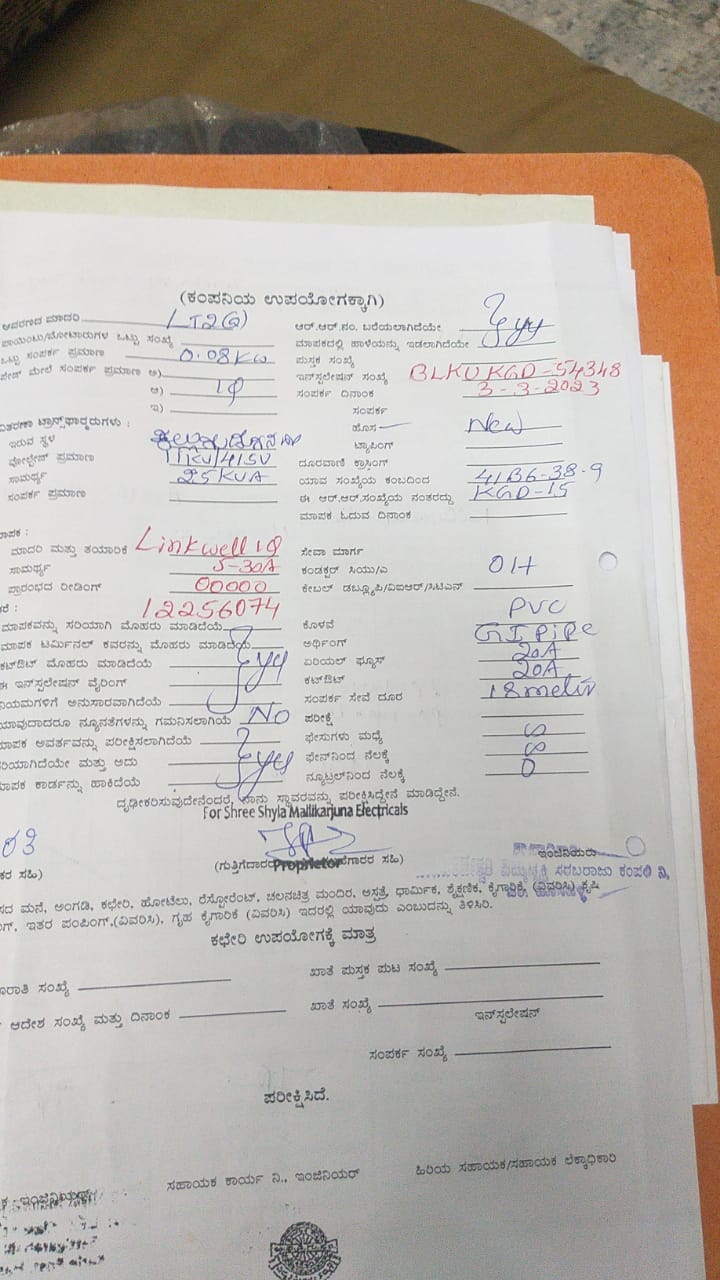 (ಕಂಪನಿಯ ಉಪಯೋಗಕ್ಕಾಗಿ)
ಆವರಣದ ಮಾದರಿ LT2(a) ಆರ್.ಆರ್.ನಂ. ಬರೆಯಲಾಗಿದೆಯೇ
ಪಾಯಿಂಟು/ಮೋಟಾರುಗಳ ಒಟ್ಟು ಸಂಖ್ಯೆ ಮಾಪಕದಲ್ಲಿ ಹಾಳೆಯನ್ನು ಇಡಲಾಗಿದೆಯೇ
ಒಟ್ಟು ಸಂಪರ್ಕ ಪ್ರಮಾಣ 0.08KW ಪುಸ್ತಕ ಸಂಖ್ಯೆ
ಮೇಲೆ ಸಂಪರ್ಕ ಪ್ರಮಾಣ ಅ) ಇನ್ಸ್ಟಲೇಷನ್ ಸಂಖ್ಯೆ BLKUKGD-54348
ಆ) 1Φ ಸಂಪರ್ಕ ದಿನಾಂಕ 3-3-2023
ಇ) ಸಂಪರ್ಕ
ವಿತರಣಾ ಟ್ರಾನ್ಸ್‌ಫಾರ್ಮರುಗಳು : ಹೊಸ New
ಇರುವ ಸ್ಥಳ ಟ್ಯಾಪಿಂಗ್
ವೋಲ್ಟೇಜ್ ಪ್ರಮಾಣ 11KV/415V ದೂರವಾಣಿ ಕ್ರಾಸಿಂಗ್
ಸಾಮರ್ಥ್ಯ 25KVA ಯಾವ ಸಂಖ್ಯೆಯ ಕಂಬದಿಂದ 41B6-38-9
ಸಂಪರ್ಕ ಪ್ರಮಾಣ ಈ ಆರ್.ಆರ್.ಸಂಖ್ಯೆಯ ನಂತರದ್ದು KGD-15
ಮಾಪಕ ಓದುವ ದಿನಾಂಕ
ಮಾಪಕ :
ಮಾದರಿ ಮತ್ತು ತಯಾರಿಕೆ Linkwell 1Φ ಸೇವಾ ಮಾರ್ಗ
ಸಾಮರ್ಥ್ಯ 5-30A ಕಂಡಕ್ಟರ್ ಸಿಯು/ಎ OH
ಪ್ರಾರಂಭದ ರೀಡಿಂಗ್ 00000 ಕೇಬಲ್ ಡಬ್ಲ್ಯೂಪಿ/ವಿಐಆರ್/ಸಿಟಿಎಸ್
12256074 ಕೊಳವೆ PVC
ಮಾಪಕವನ್ನು ಸರಿಯಾಗಿ ಮೊಹರು ಮಾಡಿದೆಯೆ
ಮಾಪಕ ಟರ್ಮಿನಲ್ ಕವರನ್ನು ಮೊಹರು ಮಾಡಿದೆಯೆ ಅರ್ಥಿಂಗ್ GI PiPe
ಕಟೌಟ್ ಮೊಹರು ಮಾಡಿದೆಯೆ ಏರಿಯಲ್ ಫ್ಯೂಸ್ 20A
ಈ ಇನ್ಸ್ಟಲೇಷನ್ ವೈರಿಂಗ್ ಕಟೌಟ್ 20A
ನಿಯಮಗಳಿಗೆ ಅನುಸಾರವಾಗಿದೆಯೆ ಸಂಪರ್ಕ ಸೇವೆ ದೂರ 18 meter
ಯಾವುದಾದರೂ ನ್ಯೂನತೆಗಳನ್ನು ಗಮನಿಸಲಾಗಿಯೆ No ಪರೀಕ್ಷೆ
ಮಾಪಕ ಆವರ್ತವನ್ನು ಪರೀಕ್ಷಿಸಲಾಗಿದೆಯೆ ಫೇಸುಗಳು ಮಧ್ಯೆ ∞
ಸರಿಯಾಗಿದೆಯೇ ಮತ್ತು ಅದು ಫೇಸ್‌ನಿಂದ ನೆಲಕ್ಕೆ ∞
ಮಾಪಕ ಕಾರ್ಡನ್ನು ಹಾಕಿದೆಯೆ ನ್ಯೂಟ್ರಲ್‌ನಿಂದ ನೆಲಕ್ಕೆ 0
ದೃಢೀಕರಿಸುವುದೇನೆಂದರೆ, ನಾನು ಸ್ಥಾವರವನ್ನು ಪರೀಕ್ಷಿಸಿದ್ದೇನೆ ಮಾಡಿದ್ದೇನೆ.
For Shree Shyla Mallikarjuna Electricals
03
ಸಹಿ) (ಗುತ್ತಿಗೆದಾರರ ಸಹಿ) ಇಂಜಿನಿಯರು
Proprietor
ಮನೆ, ಅಂಗಡಿ, ಕಛೇರಿ, ಹೋಟೆಲು, ರೆಸ್ಟೋರೆಂಟ್, ಚಲನಚಿತ್ರ ಮಂದಿರ, ಆಸ್ಪತ್ರೆ, ಧಾರ್ಮಿಕ, ಶೈಕ್ಷಣಿಕ, ಕೈಗಾರಿಕೆ, (ವಿವರಿಸಿ) ಕೃಷಿ
ಇತರ ಪಂಪಿಂಗ್,(ವಿವರಿಸಿ), ಗೃಹ ಕೈಗಾರಿಕೆ (ವಿವರಿಸಿ) ಇದರಲ್ಲಿ ಯಾವುದು ಎಂಬುದನ್ನು ತಿಳಿಸಿರಿ.
ಕಛೇರಿ ಉಪಯೋಗಕ್ಕೆ ಮಾತ್ರ
ಸಂಖ್ಯೆ ಖಾತೆ ಪುಸ್ತಕ ಪುಟ ಸಂಖ್ಯೆ
ಆದೇಶ ಸಂಖ್ಯೆ ಮತ್ತು ದಿನಾಂಕ ಖಾತೆ ಸಂಖ್ಯೆ
ಇನ್ಸ್ಟಲೇಷನ್
ಸಂಪರ್ಕ ಸಂಖ್ಯೆ
ಪರೀಕ್ಷಿಸಿದೆ.
ಸಹಾಯಕ ಕಾರ್ಯ ನಿ., ಇಂಜಿನಿಯರ್ ಹಿರಿಯ ಸಹಾಯಕ/ಸಹಾಯಕ ಲೆಕ್ಕಾಧಿಕಾರಿ
ಇಂಜಿನಿಯರ್